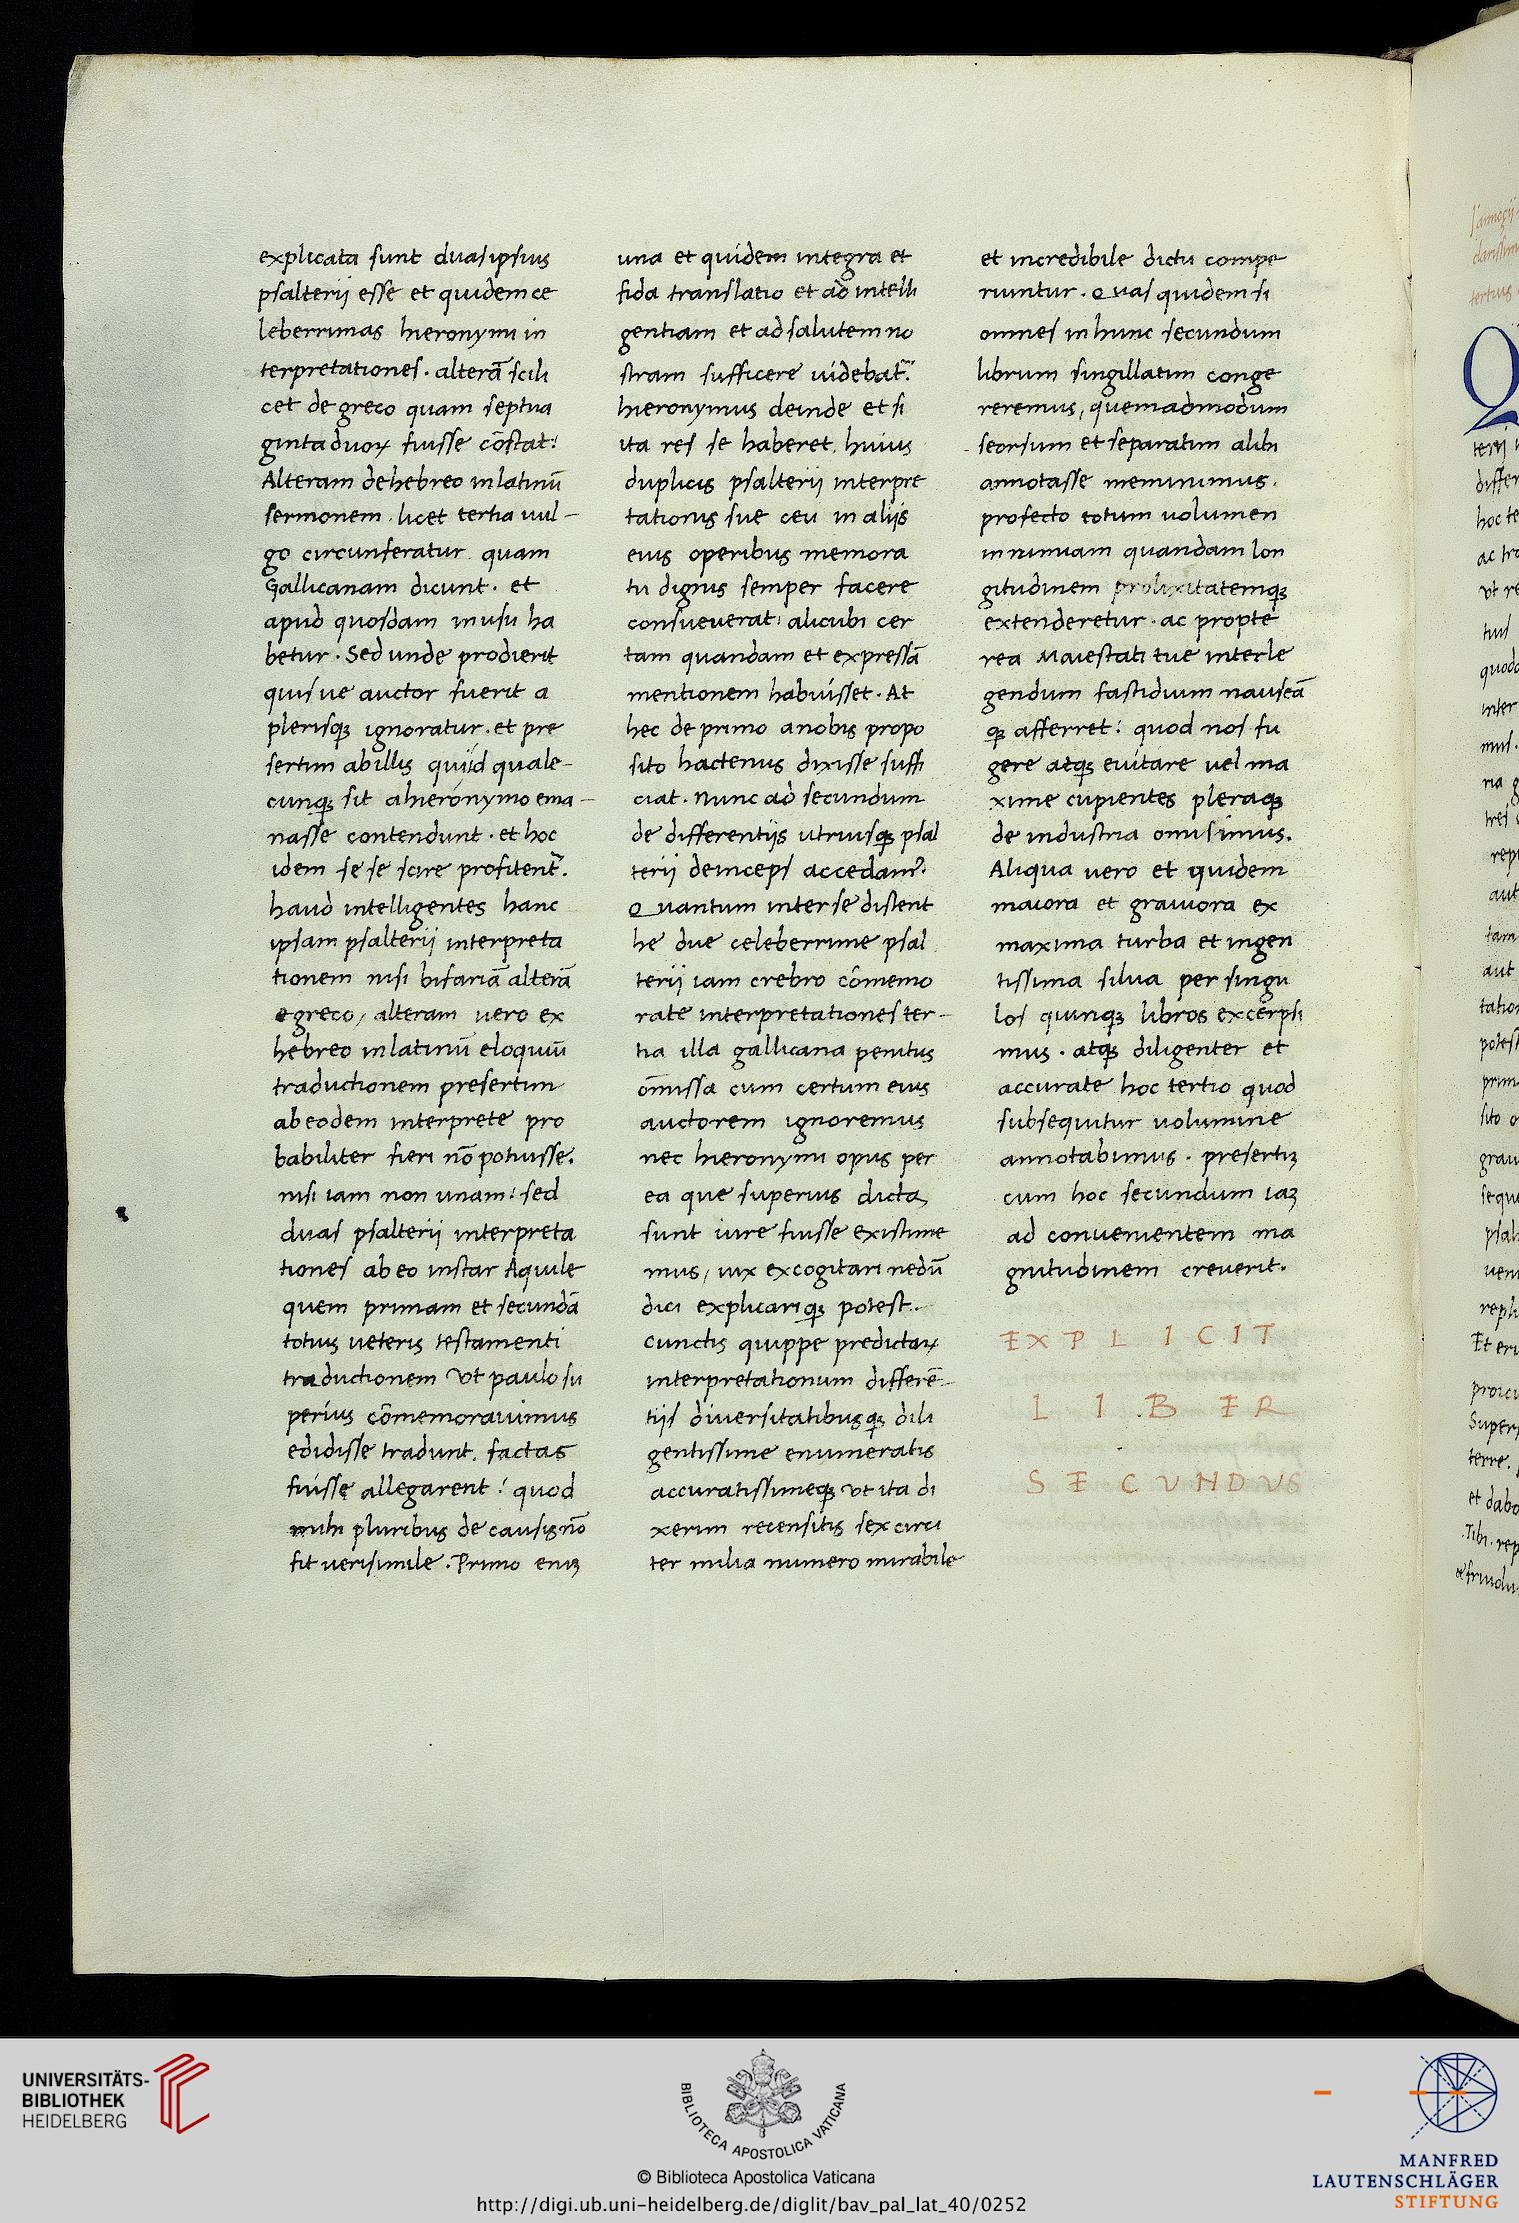 explicata sunt duas ipsius
psalterii esse et quidem ce
leberrimas hieronymi in
terpretationes. alterā scili
cet de greco quam septua
ginta duoꝝ fuisse cōstat:
Alteram de hebreo in latinū
sermonem. licet tertia vul-
go circunferatur quam
Gallicanam dicunt. et
apud quosdam in usu ha
betur. Sed unde prodierit
quis ve auctor fuerit a
plerisqꝫ ignoratur. et pre
sertim ab illis quid quale-
cunqꝫ sit a hierónymo ema-
nasse contendunt. et hoc
idem se se scire profitent̄.
haud intelligentes hanc
ipsam psalterii interpreta
tionem nisi bifariā alterā
e greco, alteram vero ex
hebreo in latinū eloquiū
traductionem presertim
ab eodem interprete pro
babiliter fieri nō potuisse.
nisi iam non unam: sed
duas psalterii interpreta
tiones ab eo instar Aquile
quem primam et secundā
totius veteris testamenti
traductionem vt paulo su
perius cōmemoravimus
edidisse tradunt. factas
fuisse allegarent: quod
mihi pluribus de causis nō
fit verisimile. Primo eniꝫ
una et quidem integra et
fida translatio et ad intelli
gentiam et ad salutem no
stram sufficere videbat̄.
hieronymus deinde et si
ita res se haberet. huius
duplicis psalterii interpre
tationis sue ceu in aliis
eius operibus memora
tu dignis semper facere
consueverat: alicubi cer
tam quandam et expressā
mentionem habuisset. At
hec de primo a nobis propo
sito hactenus dixisse suffi
ciat. Nunc ad secundum
de differentiis utriusqꝫ psal
terii deinceps accedam?.
Quantum inter se distent
he due celeberrime psal
terii iam crebro cōmemo
rate interpretationes ter-
tia illa gallicana penitus
omissa cum certum eius
auctorem ignoremus
nec hieronymi opus per
ea que superius dicta
sunt iure fuisse existime
mus, vix excogitari nedū
dici explicariqꝫ potest.
Cunctis quippe predictaꝝ
interpretationum differē-
tiis diversitatibusqꝫ dili
gentissime enumeratis
accuratissimeqꝫ vt ita di
xerim recensitis sex circi
ter milia numero mirabile
et incredibile dictu compe
riuntur. Quas quidem si
omnes in hunc secundum
librum singillatim conge
reremus, quemadmodum
seorsum et separatim alibi
annotasse meminimus.
profecto totum volumen
in nimiam quandam lon
gitudinem prolixitatemqꝫ
extenderetur. ac propte
rea Maiestati tue interle
gendum fastidium nauseā
qꝫ afferret: quod nos fu
gere atqꝫ evitare vel ma
xime cupientes pleraqꝫ
de industria omisimus.
Aliqua vero et quidem
maiora et graviora ex
maxima turba et ingen
tissima silva per singu
los quinqꝫ libros excerpsi
mus. atqꝫ diligenter et
accurate hoc tertio quod
subsequitur volumine
annotabimus. presertiꝫ
cum hoc secundum iaꝫ
ad convenientem ma
gnitudinem creverit.
EXPLICIT
LIBER
SECUNDUS
Q
hoc te
ac tra
vt re
tus
quoda
inter
mus.
ria g
tres
rep
aut
tam
aut
tation
potest
prim
sito
grau
sequ
psal
ueni
reph
Et eri
proicu
Super
terre.
et dabo
Tibi. rep
UNIVERSITÄTS-
BIBLIOTHEK
HEIDELBERG
BIBLIOTECA APOSTOLICA VATICANA
© Biblioteca Apostolica Vaticana
http://digi.ub.uni-heidelberg.de/diglit/bav_pal_lat_40/0252
MANFRED
LAUTENSCHLÄGER
STIFTUNG